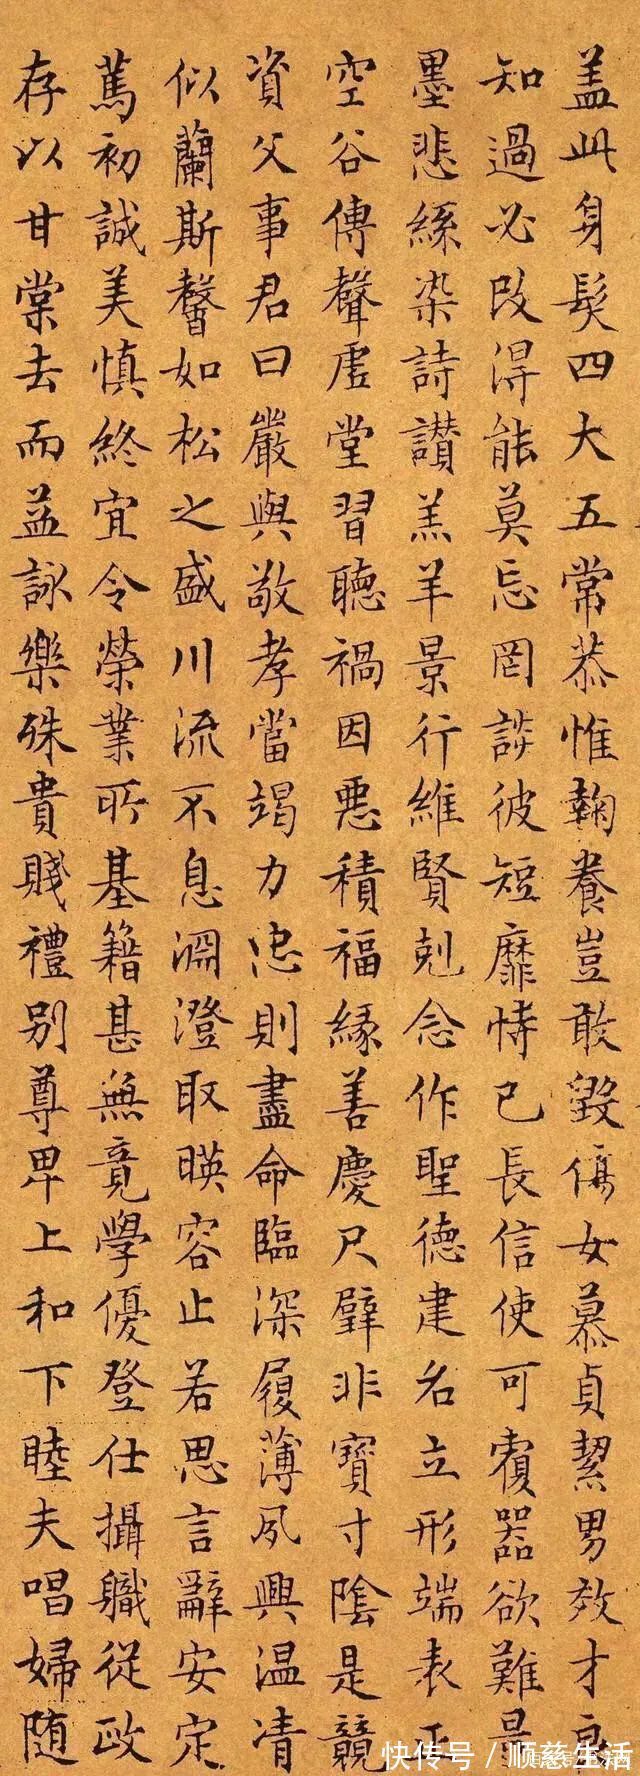 盖此身髮四大五常恭惟鞠養豈敢毀傷女慕貞絜男效才良
知過必改得能莫忘罔談彼短靡恃己長信使可覆器欲難量
墨悲絲染詩讚羔羊景行維賢剋念作聖德建名立形端表正
空谷傳聲虛堂習聽禍因惡積福緣善慶尺璧非寶寸陰是競
資父事君曰嚴與敬孝當竭力忠則盡命臨深履薄夙興温凊
似蘭斯馨如松之盛川流不息淵澄取暎容止若思言辭安定
篤初誠美慎終宜令榮業所基籍甚無竟學優登仕攝職從政
存以甘棠去而益詠樂殊貴賤禮別尊卑上和下睦夫唱婦随
快传号／顺慈生活